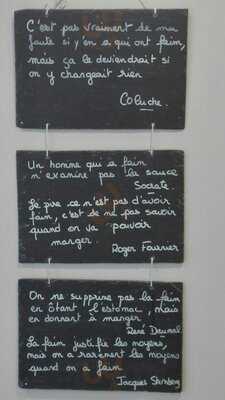 C'est pas vraiment de ma
faute si y'en a qui ont faim,
mais ça le deviendrait si
on y changeait rien
Coluche.
Un homme qui a faim
n'examine pas la sauce
Socrate.
Le pire ce n'est pas d'avoir
faim, c'est de ne pas savoir
quand on va pouvoir
manger.
Roger Fournier
On ne supprime pas la faim
en ôtant l'estomac, mais
en donnant à manger
René Daumal
La faim justifie les moyens,
mais on a rarement les moyens
quand on a faim
Jacques Sternberg